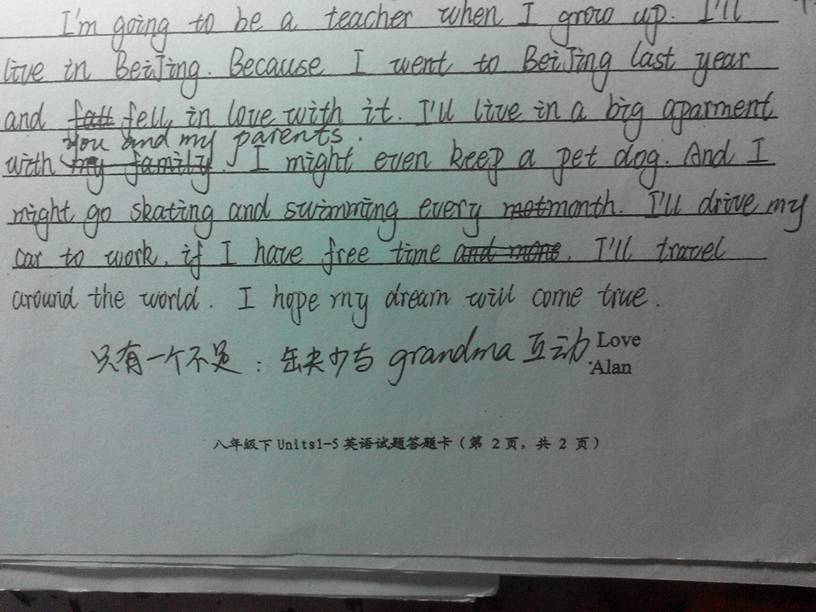 I'm going to be a teacher when I grow up. I'll
live in BeiJing. Because I went to BeiJing last year
and fall fell in love with it. I'll live in a big aparment
you and my parents.
with my family. I might even keep a pet dog. And I
might go skating and swimming every mot month. I'll drive my
car to work, if I have free time and mone. I'll travel
around the world. I hope my dream will come true.
只有一个不足：缺少与grandma互动
Love
Alan
八年级下Units1-5英语试题答题卡（第 2 页，共 2 页）